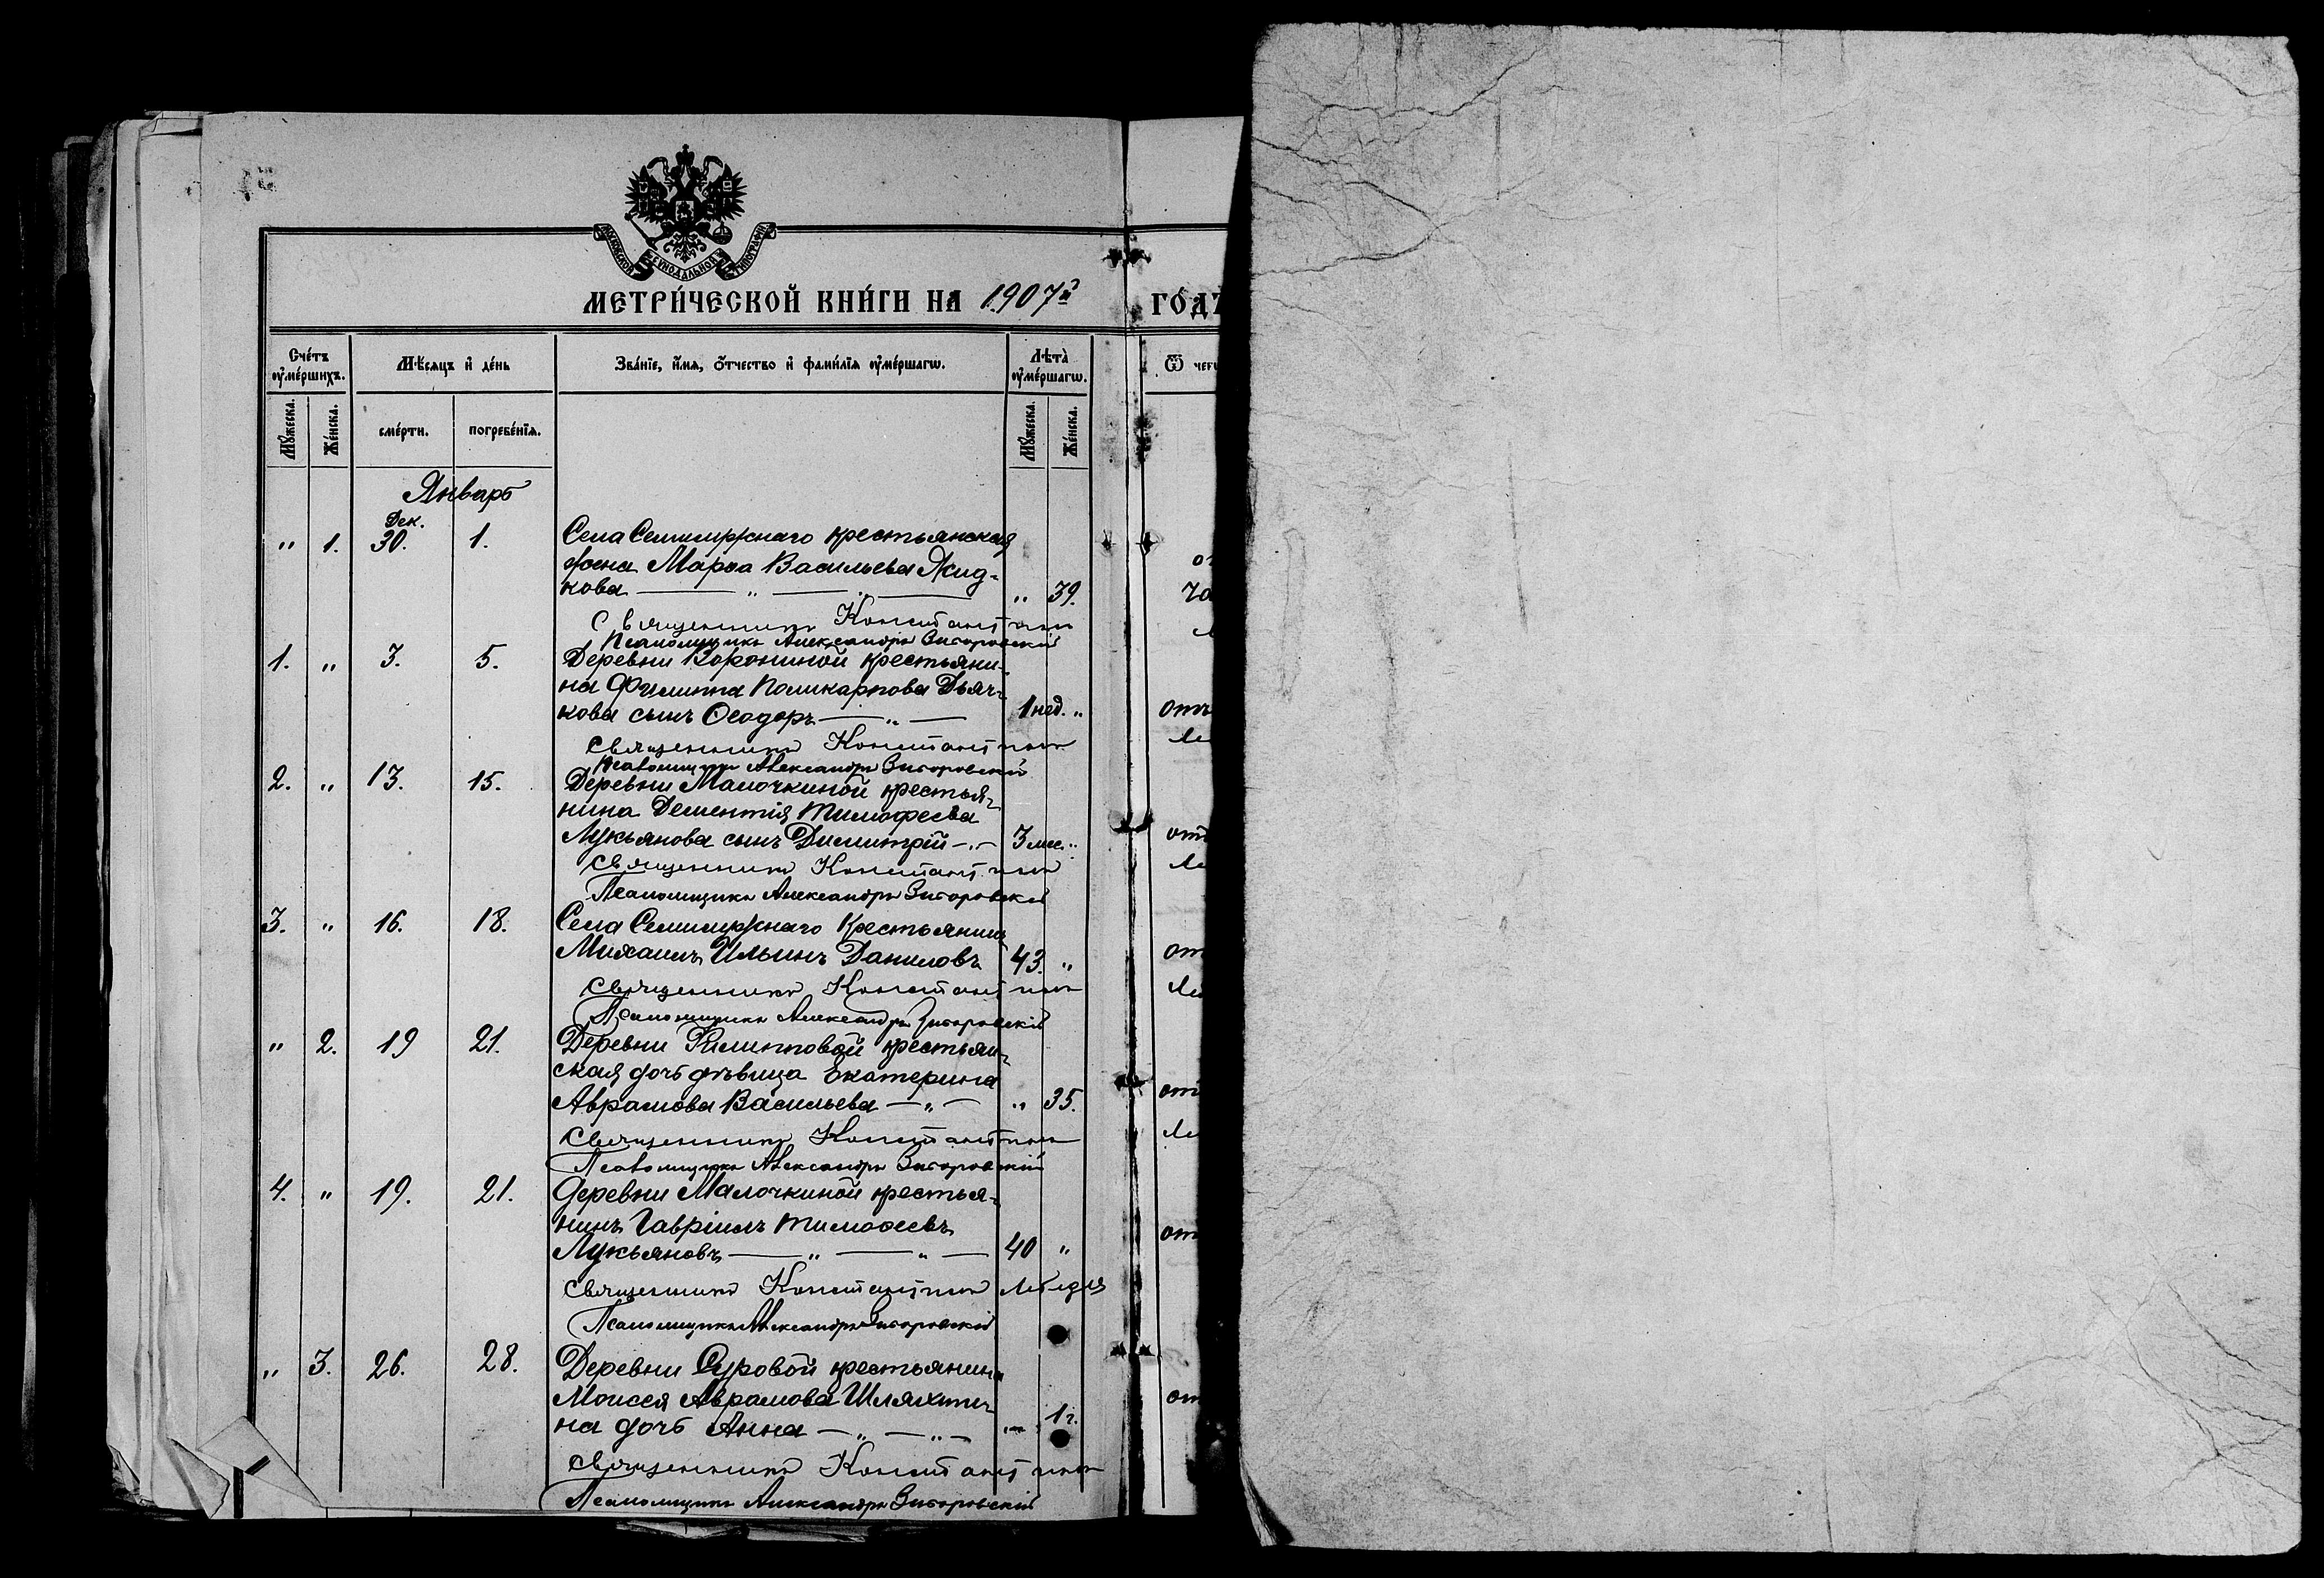 МОСКОВСКОЙ СѴНОДАЛЬНОЙ ТИПОГРАФІИ
МЕТРИ́ЧЕСКОЙ КНИ́ГИ НА 1907й ГО́ДЪ
Сче́тъ ᲂу҆ме́ршихъ.
Мѣ́сяцъ и҆ де́нь
Зва́нїе, и҆́мѧ, ѻ҆́тчество и҆ фами́лїѧ ᲂу҆ме́ршагѡ.
Лѣта̀ ᲂу҆ме́ршагѡ.
Ѿ чегѡ
Мꙋ́жеска.
Же́нска.
сме́рти.
погребе́нїѧ.
Мꙋ́жеска.
Же́нска.
Январь
Дек.
" 1. 30. 1. Села Семилужнаго крестьянская
жена Марѳа Васильева Жид-
кова " 39.
Священникъ Константинъ
Псаломщикъ Александръ
1. " 3. 5. Деревни Корониной крестьяни-
на Филиппа Поликарпова Дьяч-
кова сынъ Ѳеодоръ 1 нед. "
Священникъ Константинъ
Псаломщикъ Александръ
2. " 13. 15. Деревни Малочкиной крестья-
нина Дементія Тимофеева
Лукьянова сынъ Димитрій 3 мес. "
Священникъ Константинъ
Псаломщикъ Александръ
3. " 16. 18. Села Семилужнаго крестьянинъ
Михаилъ Ильинъ Даниловъ 43. "
Священникъ Константинъ
Псаломщикъ Александръ
" 2. 19 21. Деревни Филипповой крестьян-
ская дочь дѣвица Екатерина
Аврамова Васильева " 35.
Священникъ Константинъ
Псаломщикъ Александръ
4. " 19. 21. Деревни Малочкиной крестья-
нинъ Гавріилъ Тимоѳеевъ
Лукьяновъ 40 "
Священникъ Константинъ
Псаломщикъ Александръ
" 3. 26. 28. Деревни Суровой крестьянина
Моисея Аврамова Шляхти-
на дочь Анна " 1 г.
Священникъ Константинъ
Псаломщикъ Александръ